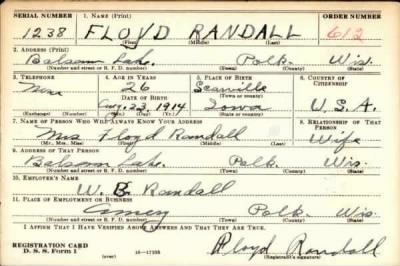 SERIAL NUMBER 1. NAME (Print) ORDER NUMBER
1238 FLOYD RANDALL 612
(First) (Middle) (Last)
2. ADDRESS (Print)
Balsam Lake. Polk. Wis.
(Number and street or R. F. D. number) (Town) (County) (State)
3. TELEPHONE 4. AGE IN YEARS 5. PLACE OF BIRTH 6. COUNTRY OF CITIZENSHIP
26 Scarville
DATE OF BIRTH (Town or county)
Aug. 23, 1914 Iowa U.S.A.
(Exchange) (Number) (Mo.) (Day) (Yr.) (State or country)
7. NAME OF PERSON WHO WILL ALWAYS KNOW YOUR ADDRESS 8. RELATIONSHIP OF THAT PERSON
Mrs Floyd Randall Wife
(Mr., Mrs., Miss) (First) (Middle) (Last)
9. ADDRESS OF THAT PERSON
Balsam Lake. Polk. Wis.
(Number and street or R. F. D. number) (Town) (County) (State)
10. EMPLOYER'S NAME
W. B. Randall
11. PLACE OF EMPLOYMENT OR BUSINESS
Amery Polk. Wis
(Number and street or R. F. D. number) (Town) (County) (State)
I AFFIRM THAT I HAVE VERIFIED ABOVE ANSWERS AND THAT THEY ARE TRUE.
REGISTRATION CARD
D. S. S. Form 1 16—17105 Floyd Randall
(Registrant's signature)